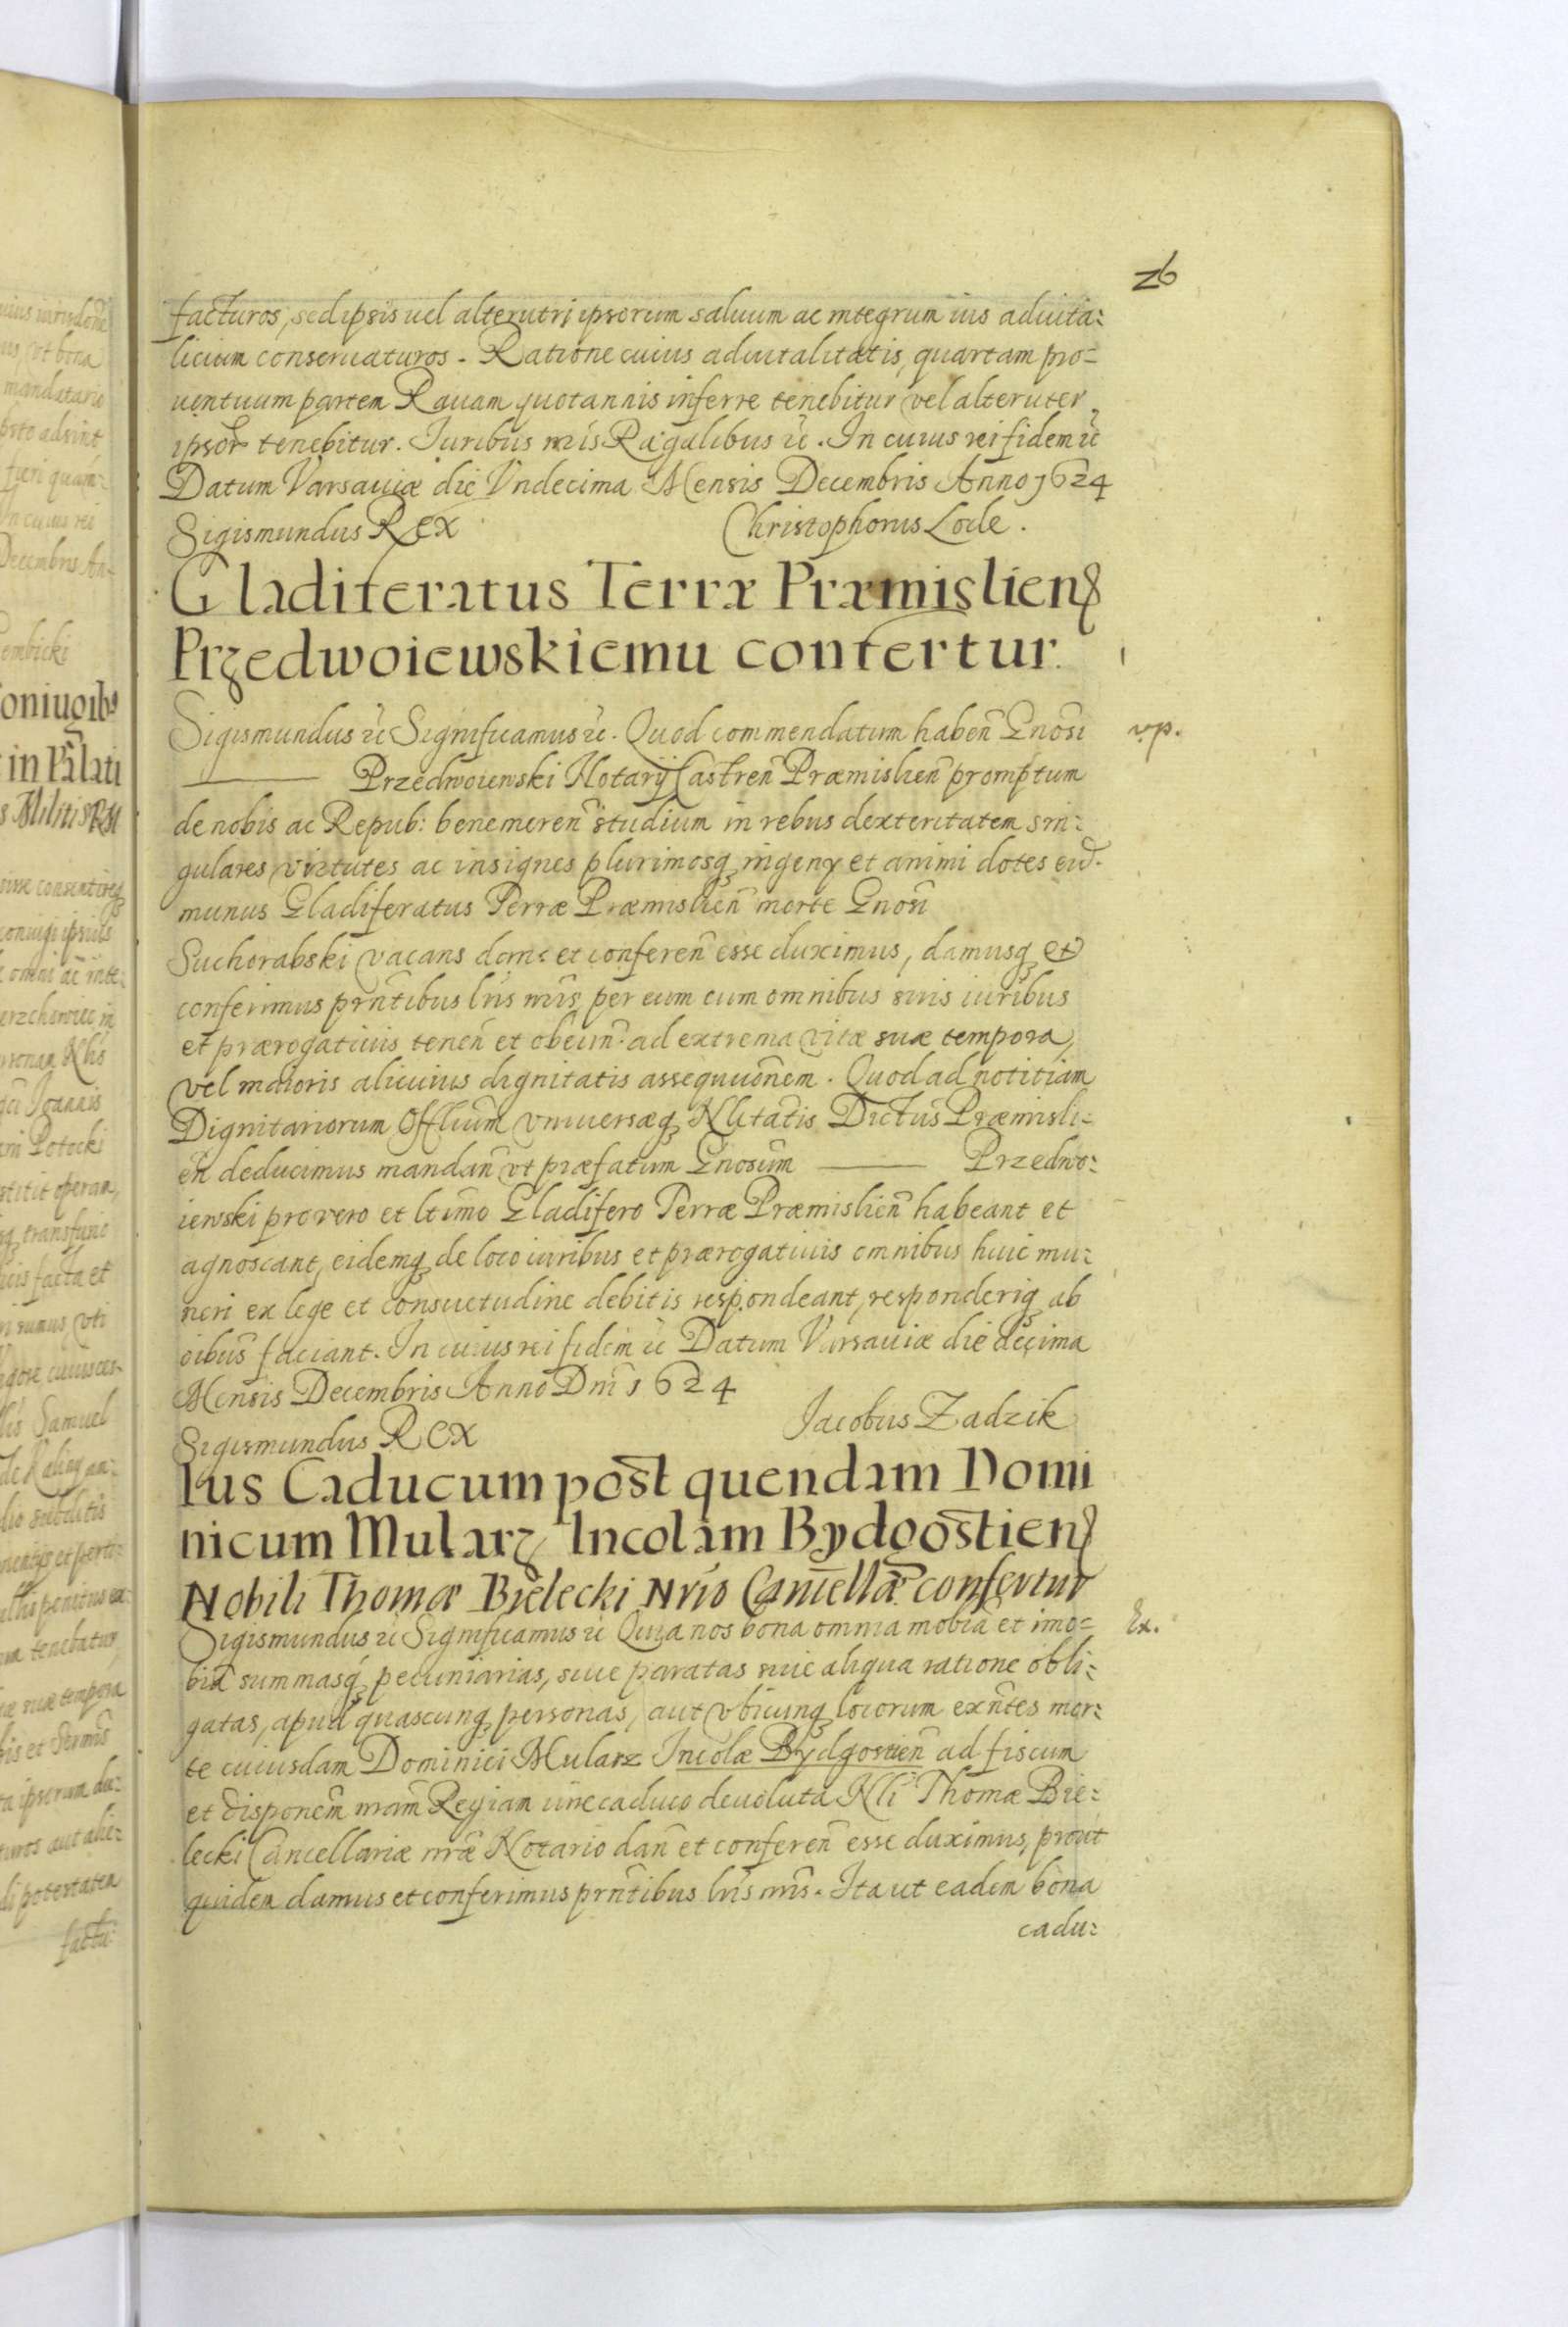 26
facturos, sed ipsis uel alterutri ipsorum saluum ac integrum ius aduita:
licium conseruaturos. Ratione cuius aduitalitatis, quartam pro=
uentuum partem Rauam quotannis inferre tenebitur vel alteruter
ipsor tenebitur. Iuribus nr̃is Regalibus ꝛc̃. In cuius rei fidem ꝛc̃
Datum Varsauiæ die Vndecima Mensis Decembris Anno 1624
Sigismundus Rex Christophorus Lode.
Gladiferatus Terræ Præmislien̄
Przedwoiewskiemu confertur.
Sigismundus ꝛc̃ Significamus ꝛc̃. Quod commendatum haben̄ Gnosi
vp.
Przedwoiewski Notarij Castren̄ Præmislien̄ promptum
de nobis ac Repub: benemeren̄ studium in rebus dexteritatem sin:
gulares virtutes ac insignes plurimosq̃ ingenij et animi dotes eid.
munus Gladiferatus Terræ Præmislien̄ morte Gnosi
Suchorabski vacans dan: et conferen̄ esse duximus, damusq̃ et
conferimus prñtibus lr̃is nr̃is per eum cum omnibus suis iuribus
et prærogatiuis tenen̄ et obeun: ad extrema vitæ suæ tempora,
vel maioris alicuius dignitatis assequuõnem. Quod ad notitiam
Dignitariorum Offlium vniuersæq̃ Nlitatis Dictus Præmisli=
en̄ deducimus mandan̄ vt præfatum Gnosum Przedwo:
iewski pro vero et ltimo Gladifero Terræ Præmislien̄ habeant et
agnoscant, eidemq̃ de loco iuribus et prærogatiuis omnibus huic mu:
neri ex lege et consuetudine debitis respondeant, responderiq̃ ab
oibus faciant. In cuius rei fidem ꝛc̃ Datum Varsauiæ die decima
Mensis Decembris Anno Dni 1624
Jacobus Zadzik
Sigismundus Rex
Ius Caducum post quendam Domi
nicum Mularz Incolam Bydgostien̄
Nobili Thomæ Bielecki Nrio Cancellæ confertur
Sigismundus ꝛc̃ Significamus ꝛc̃ Quia nos bona omnia mobia et imo=
Ex.
bia summasq̃ pecuniarias, siue paratas siue aliqua ratione obli:
gatas, apud quascunq̃ personas, aut vbicunq̃ locorum exñtes mor:
te cuiusdam Dominici Mularz Incolæ Bydgostien̄ ad fiscum
et disponem nram Regiam iure caduco deuoluta Nli Thomæ Bie:
lecki Cancellariæ nræ Notario dan̄ et conferen̄ esse duximus, prout
quidem damus et conferimus prñtibus lr̃is nr̃is. Ita ut eadem bona
cadu: